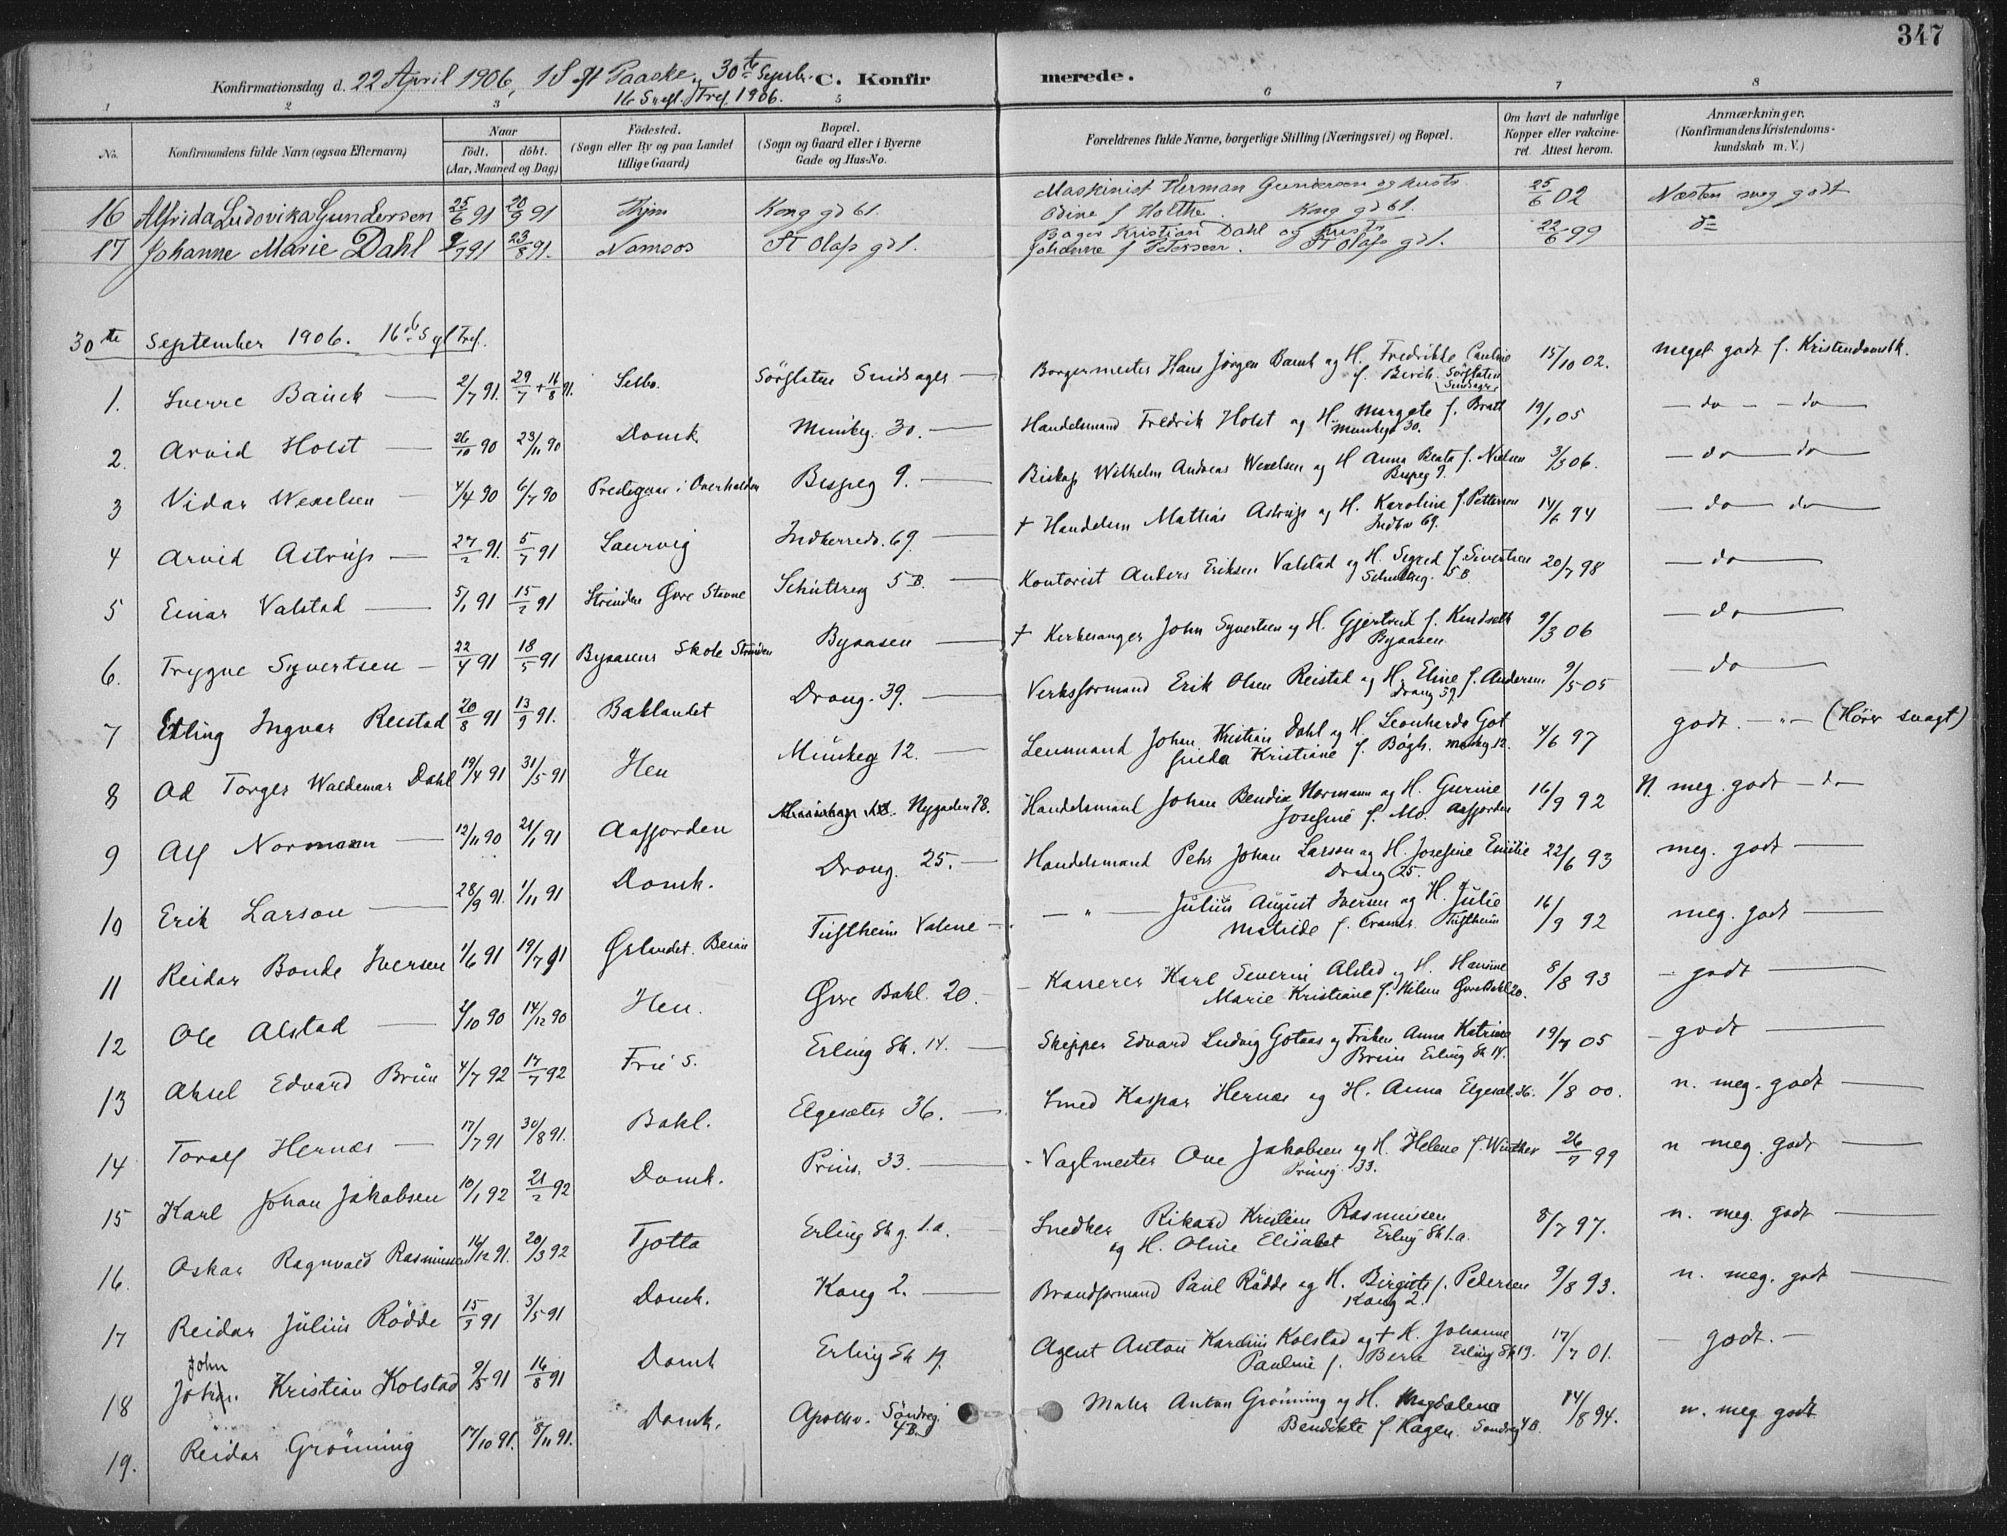 347
Konfirmationsdag d. 22 April 1906, 1 S. e. Paaske, 30te Septb. C. Konfirmerede.
16 S. e. Tref. 1906.
1 2 3 4 5 6 7 8
No. Konfirmandens fulde Navn (ogsaa Efternavn) Naar født, døbt. (Aar, Maaned og Dag) Fødested. (Sogn eller By og paa Landet tillige Gaard) Bopæl. (Sogn og Gaard eller i Byerne Gade og Hus-No. Forældrenes fulde Navne, borgerlige Stilling (Næringsvei) og Bopæl. Om havt de naturlige Kopper eller vakcineret. Attest herom. Anmærkninger. (Konfirmandens Kristendomskundskab m. V.)
16 Alfrida Ludovika Gundersen 25/6 91 20/9 91 Thjm Kong gd 61. Maskinist Herman Gundersen og hustr. Odine f. Holthe. Kong gd 61. 25/6 02 Næsten meg godt
17 Johanne Marie Dahl 9/7 91 23/8 91. Namsos St Olafs gd 1. Bager Kristian Dahl og hustr. Johanne f. Petersen. St Olafs gd 1. 22/6 99 do
30te September 1906. 16de S e Tref.
1. Sverre Bauck 2/7 91. 29/7 + 16/8 91. Selbo. Borgermester Hans Jörgen Bauck og H. Fredrikke Pauline f. Berch. 15/10 02. meget godt f. Kristendomsk.
2. Arvid Holst 26/10 90 23/11 90 Domk. Munkeg. 30. Handelsmand Fredrik Holst og H. Margete f. Bratt Munkegd 30. 19/1 05 do do
3 Vidar Wexelsen 4/4 90 6/7 90 Prestegaar i Overhalden Bispeg 9. Biskop Wilhelm Andreas Wexelsen og H Anna Beata f. Nielsen Bispeg 9. 3/3 06. do do
4 Arvid Astrup 27/2 91. 5/7 91 Laurvig Indherredv. 69. † Handelsm Mathias Astrup og H. Karoline f. Pettersen Indhv 69. 14/6 94 do do
5 Einar Valstad 5/1 91 15/2 91 Strinden Øvre Stavne Schultzeg 5 B. Kontorist Anders Eriksen Valstad og H. Sigred f. Sivertsen Schultzeg. 5 B. 20/7 98 do
6. Trygve Syvertsen 22/4 91 18/5 91 Byaasens Skole Strinden Byaasen † Kirkesanger John Syvertsen og H. Gjertrud f. Kindseth Byaasen 9/3 06 do
7 Erling Ingvar Reistad 20/8 91 13/9 91. Baklandet Drong. 39. Verksformand Erik Olsen Reistad og H. Eline f. Andersen Drong 39. 9/5 05 do
8 Ad Torger Waldemar Dahl 19/4 91 31/5 91 Hen Munkeg 12. Lensmand Johan Kristian Dahl og H. Leonharda Gotfrieda Kristiane f. Bøgh. Munkeg 12. 4/6 97 godt. (Hører svagt)
9 Alf Normann 12/11 90 21/1 91 Aafjorden Nygaden 28. Handelsmand Johan Bendix Normann og H. Gurine Josefine f. Mo. Aafjorden 16/9 92 N. meg. godt do
10 Erik Larson 28/9 91. 1/11 91 Domk. Drong. 25. Handelsmand Pehr Johan Larson og H. Josefine Emilie Drong 25. 22/6 93 meg. godt
11 Reidar Bonde Iversen 1/6 91 19/7 91 Ørlandet. Beian Tuftheim Valene " Julius August Iversen og H. Julie Matilde f. Cramer. Tuftheim 16/9 92 meg. godt
12 Ole Alstad 2/10 90 14/12 90 Hen. Øvre Bakl. 20. Kasserer Karl Severin Alstad og H. Hansine Marie Kristiane f. Nilsen Øvre Bakl 20. 8/8 93 godt
13 Aksel Edvard Brun 4/7 92 17/7 92 Frie S. Erling Sk. 14. Skipper Edvard Ludvig Gotaas og Frøken Anna Katrine Brun Erling Sk 14. 19/7 05 godt
14 Toralf Hernæs 17/7 91 30/8 91. Bakl. Elgesæter 36. Smed Kaspar Hernæs og H. Anna Elgesæt. 36. 1/8 00. n. meg. godt
15 Karl Johan Jakobsen 10/1 92 21/2 92 Domk. Prins. 33. Vagtmester Ove Jakobsen og H. Helene f. Winther Prinsg. 33. 26/7 99 n meg. godt
16. Oskar Ragnvald Rasmussen 14/12 91. 20/3 92 Tjotta Erling Sk g. 1.a. Snedker Rikard Kristian Rasmussen og H. Oline Elisabet Erling Sk 1.a. 8/7 97. n. meg. godt
17 Reidar Julius Rödde 15/3 91 3/5 91 Domk. Kong 2. Brandformand Paul Rödde og H. Birgitte f. Pedersen Kong 2. 9/8 93. n. meg. godt
18 John Kristian Kolstad 9/5 91 16/8 91 Domk Erling Sk 19. Agent Anton Kolstad og † H. Johanne Pauline f. Berre Erling Sk 19. 17/7 01. godt.
19. Reidar Grönning 17/10 91. 8/11 91. Domk. Apothv. Söndreg. 4B. Maler Anton Grönning og H. Magdalena Bendikte f. Hagen. Sondreg 4B. 14/8 94. n. meg. godt